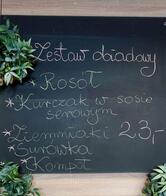 Zestaw obiadowy
* Rosół
* Kurczak w sosie
serowym
* Ziemniaki 23,-
* Surówka
* Kompot